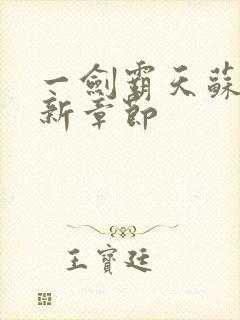 一劍霸天蘇
新章節
王寶廷